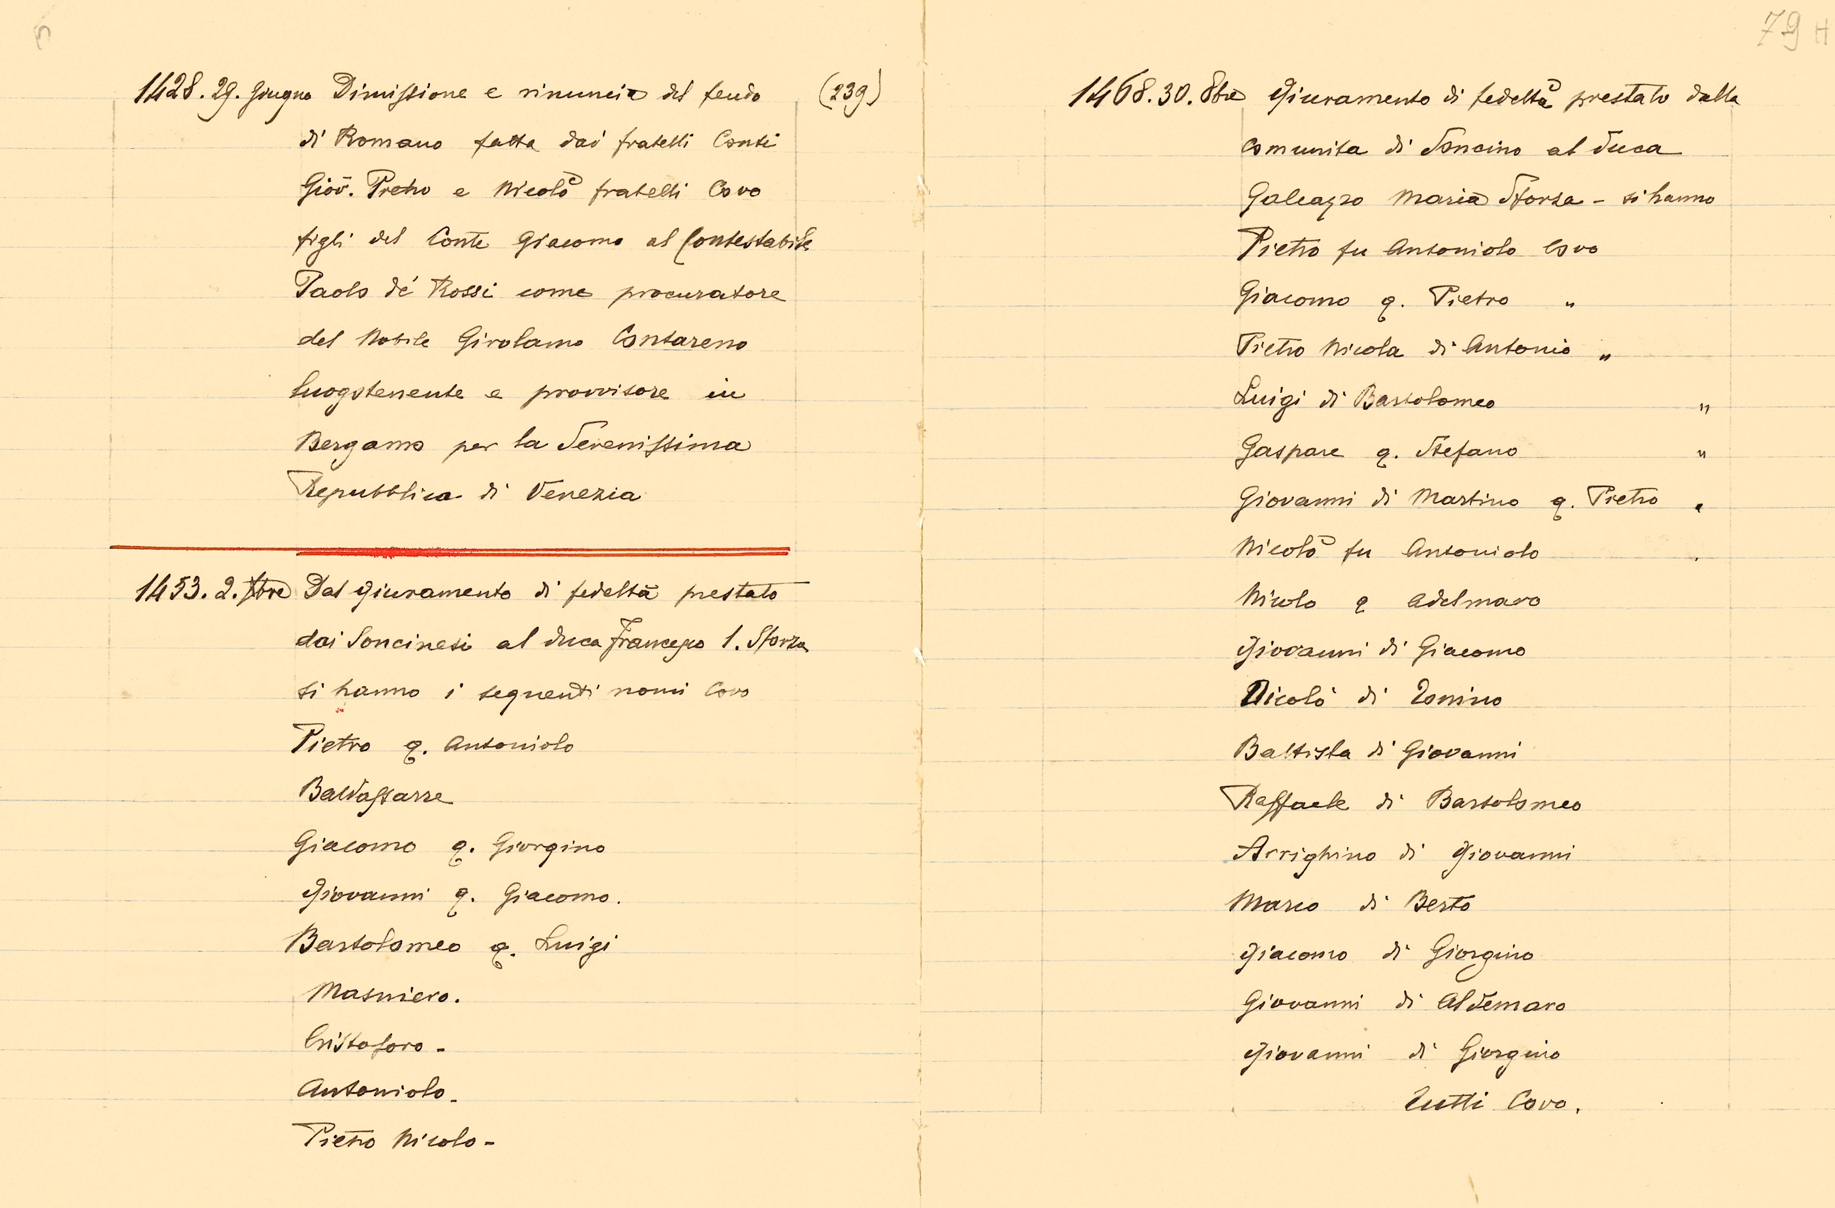 1428. 29. Giugno Dimissione e rinuncia del feudo (239)
di Romano fatta dai fratelli Conti
Giov. Pietro e Nicolò fratelli Covo
figli del Conte Giacomo al Contestabile
Paolo de' Rossi come procuratore
del Nobile Girolamo Contareno
luogotenente e provvisore in
Bergamo per la Serenissima
Repubblica di Venezia
1453. 2. Dal Giuramento di fedeltà prestato
dai Soncinesi al duca Francesco 1. Sforza
si hanno i seguenti nomi Covo
Pietro q. Antoniolo
Baldassarre
Giacomo q. Giorgino
Giovanni q. Giacomo.
Bartolomeo q. Luigi
Masniero.
Cristoforo -
Antoniolo -
Pietro Nicolo -
79 H
1468. 30. 8bre Giuramento di fedeltà prestato dalla
comunita di Soncino al Duca
Galeazzo Maria Sforza - si hanno
Pietro fu Antoniolo Covo
Giacomo q. Pietro "
Pietro Nicola di Antonio "
Luigi di Bartolomeo "
Gaspare q. Stefano "
Giovanni di Martino q. Pietro "
Nicolò fu Antoniolo "
Nicolo q Adelmaro
Giovanni di Giacomo
Nicolò di Tonino
Battista di Giovanni
Raffaele di Bartolomeo
Arrighino di Giovanni
Marco di Berto
Giacomo di Giorgino
Giovanni di Aldemaro
Giovanni di Giorgino
Tutti Covo.